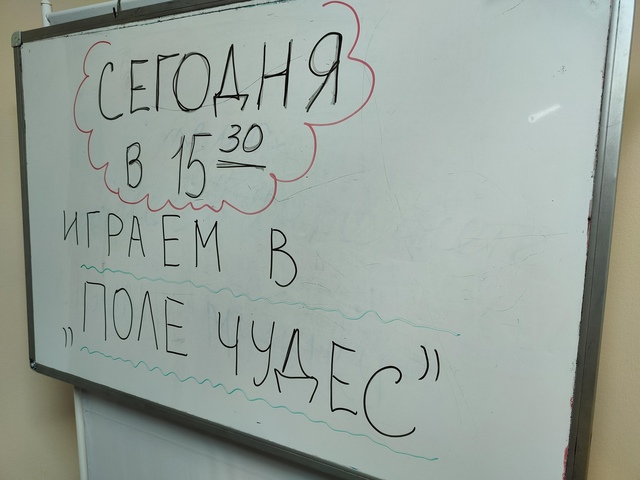 СЕГОДНЯ
В 15 30
ИГРАЕМ В
„ПОЛЕ ЧУДЕС”